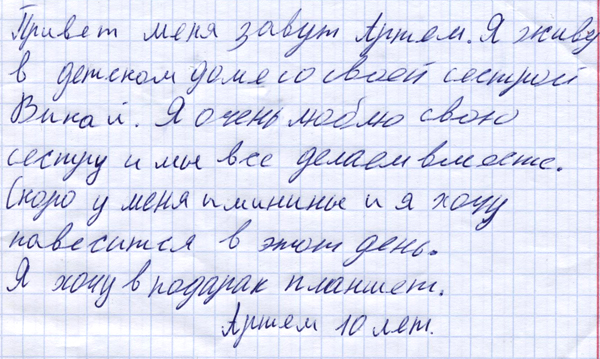 Привет меня завут Артем. Я живу
в детском доме со своей сестрой
Викай. Я очень люблю свою
сестру и мы все делаем вместе.
Скоро у меня именины и я хочу
павеситса в этот день.
Я хочу в подарак планшет.
Артем 10 лет.